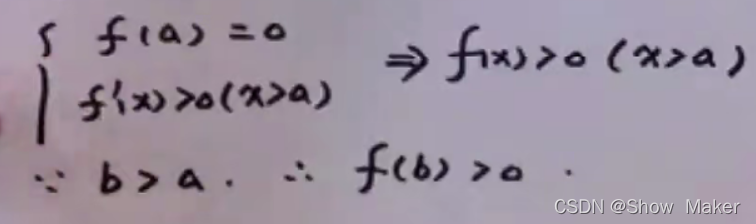 { f(a) = 0
f'(x) > 0 (x > a) ⇒ f(x) > 0 (x > a)
∵ b > a . ∴ f(b) > 0 .
CSDN @Show Maker